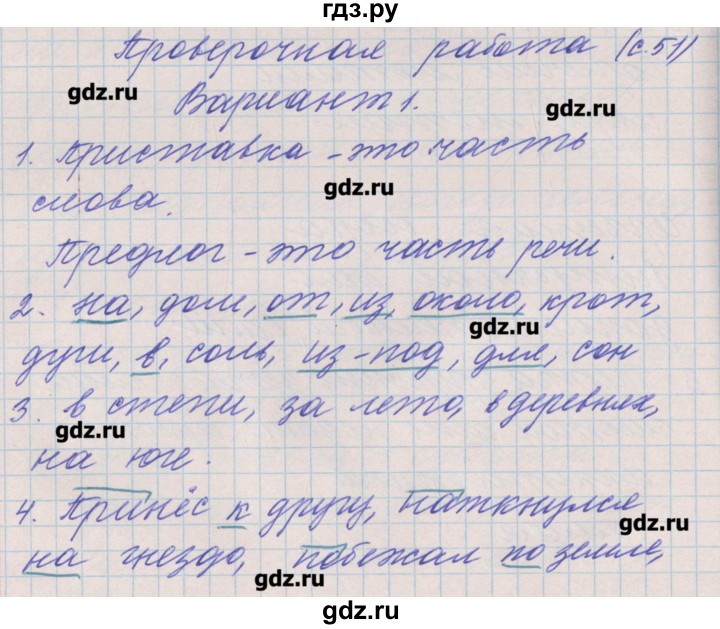 гдз.ру
Проверочная работа (с.51)
gdz.ru
Вариант 1.
gdz.ru
1. Приставка - это часть
gdz.ru
слова.
Предлог - это часть речи.
2. на, дом, от, из, около, крот,
gdz.ru
душ, в, соль, из-под, для, сон
3. в степи, за лето, в деревнях,
gdz.ru
на юге.
4. Принёс к другу, наткнулся
gdz.ru
на гнездо, побежал по земле,
gdz.ru
gdz.ru